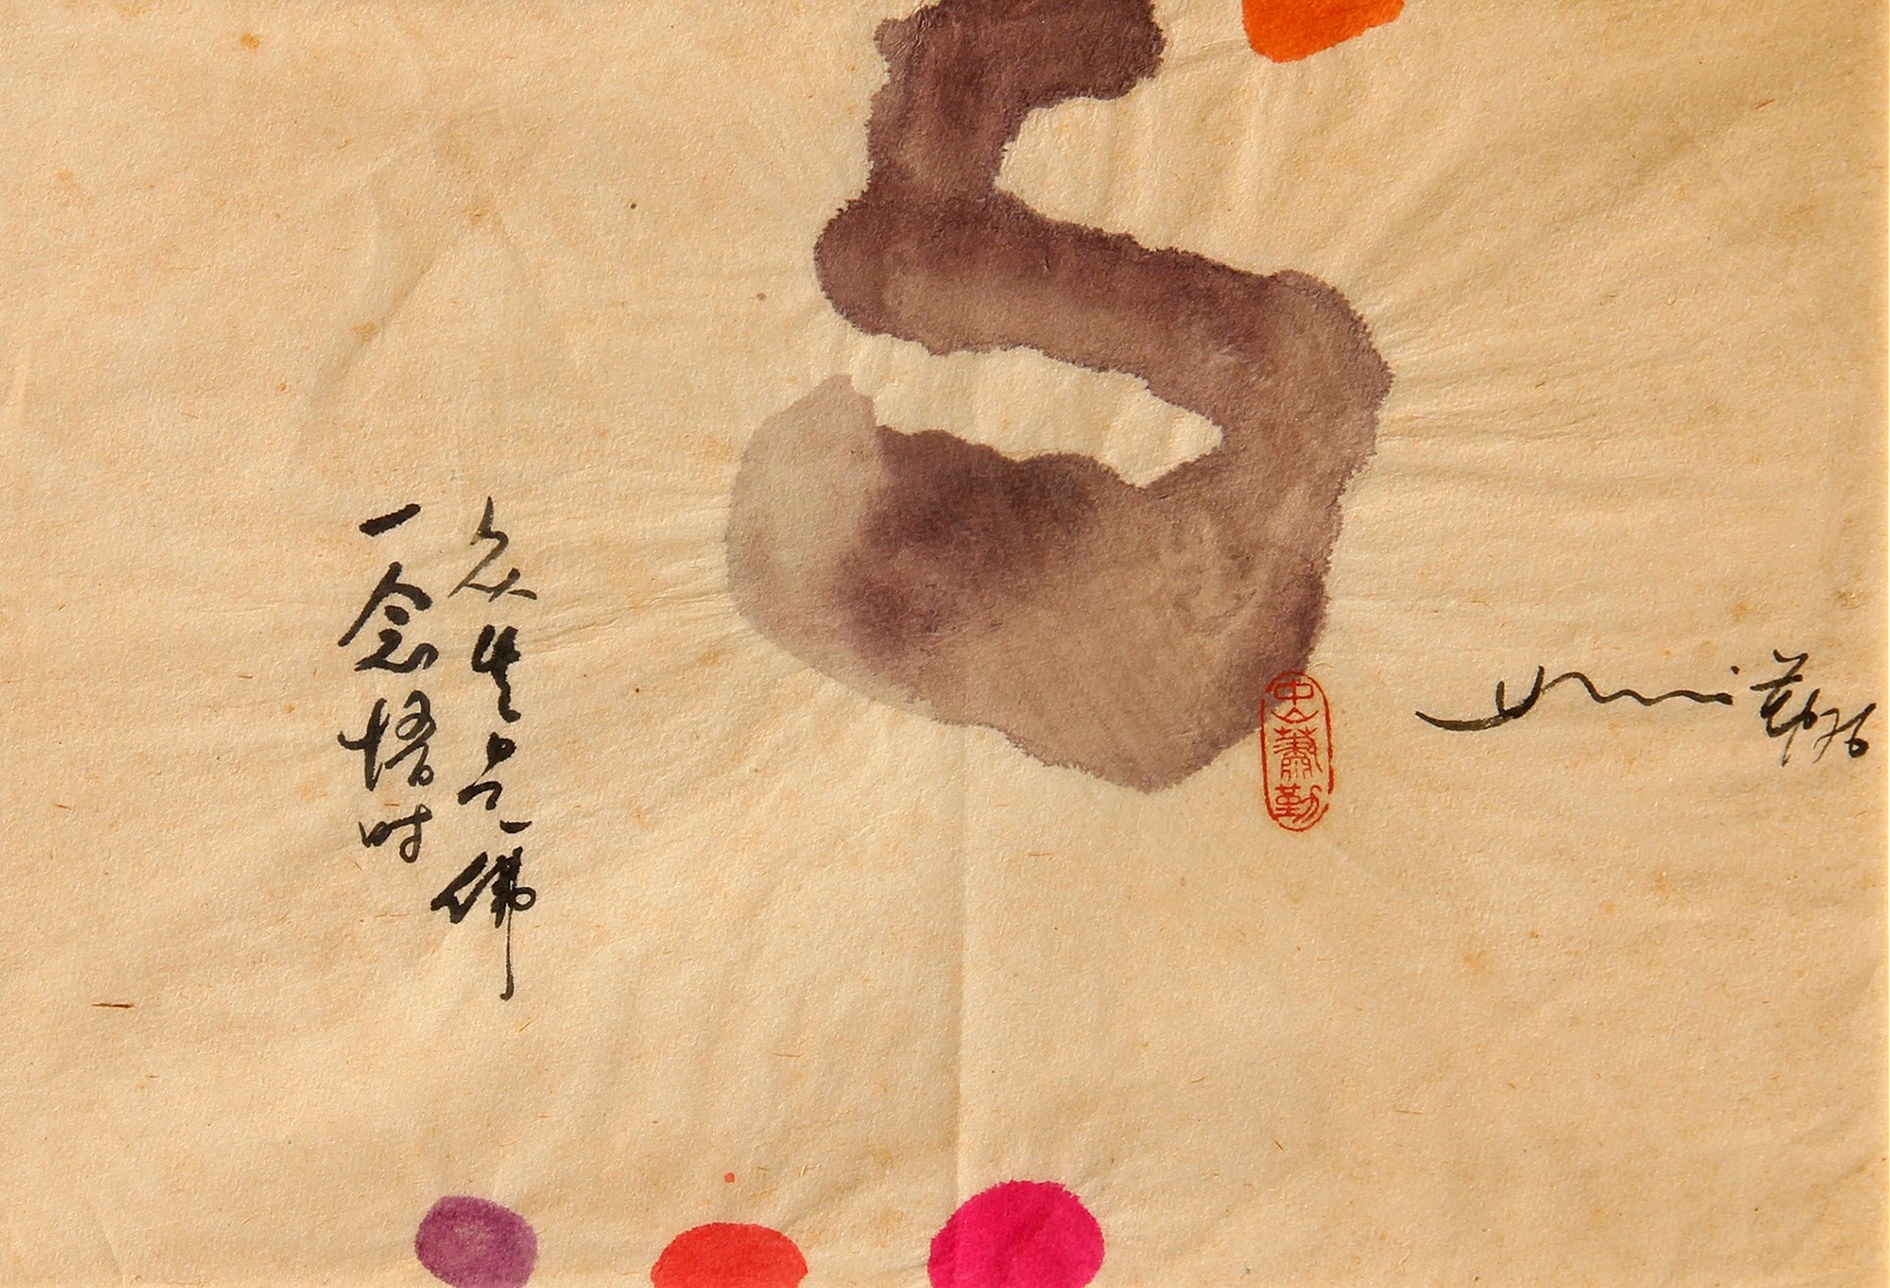 一念悟时
众生是佛
勤 76
中山蕭勤